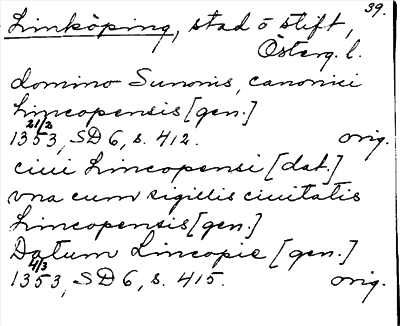 39.
Linköping, stad o stift,
Österg. l.
domino Sunonis, canonici
Lincopensis [gen.]
21/2
1353, SD 6, s. 412. orig.
ciui Lincopensi [dat.]
vna cum sigillis ciuitatis
Lincopensis [gen.]
Datum Lincopie [gen.]
4/3
1353, SD 6, s. 415. orig.